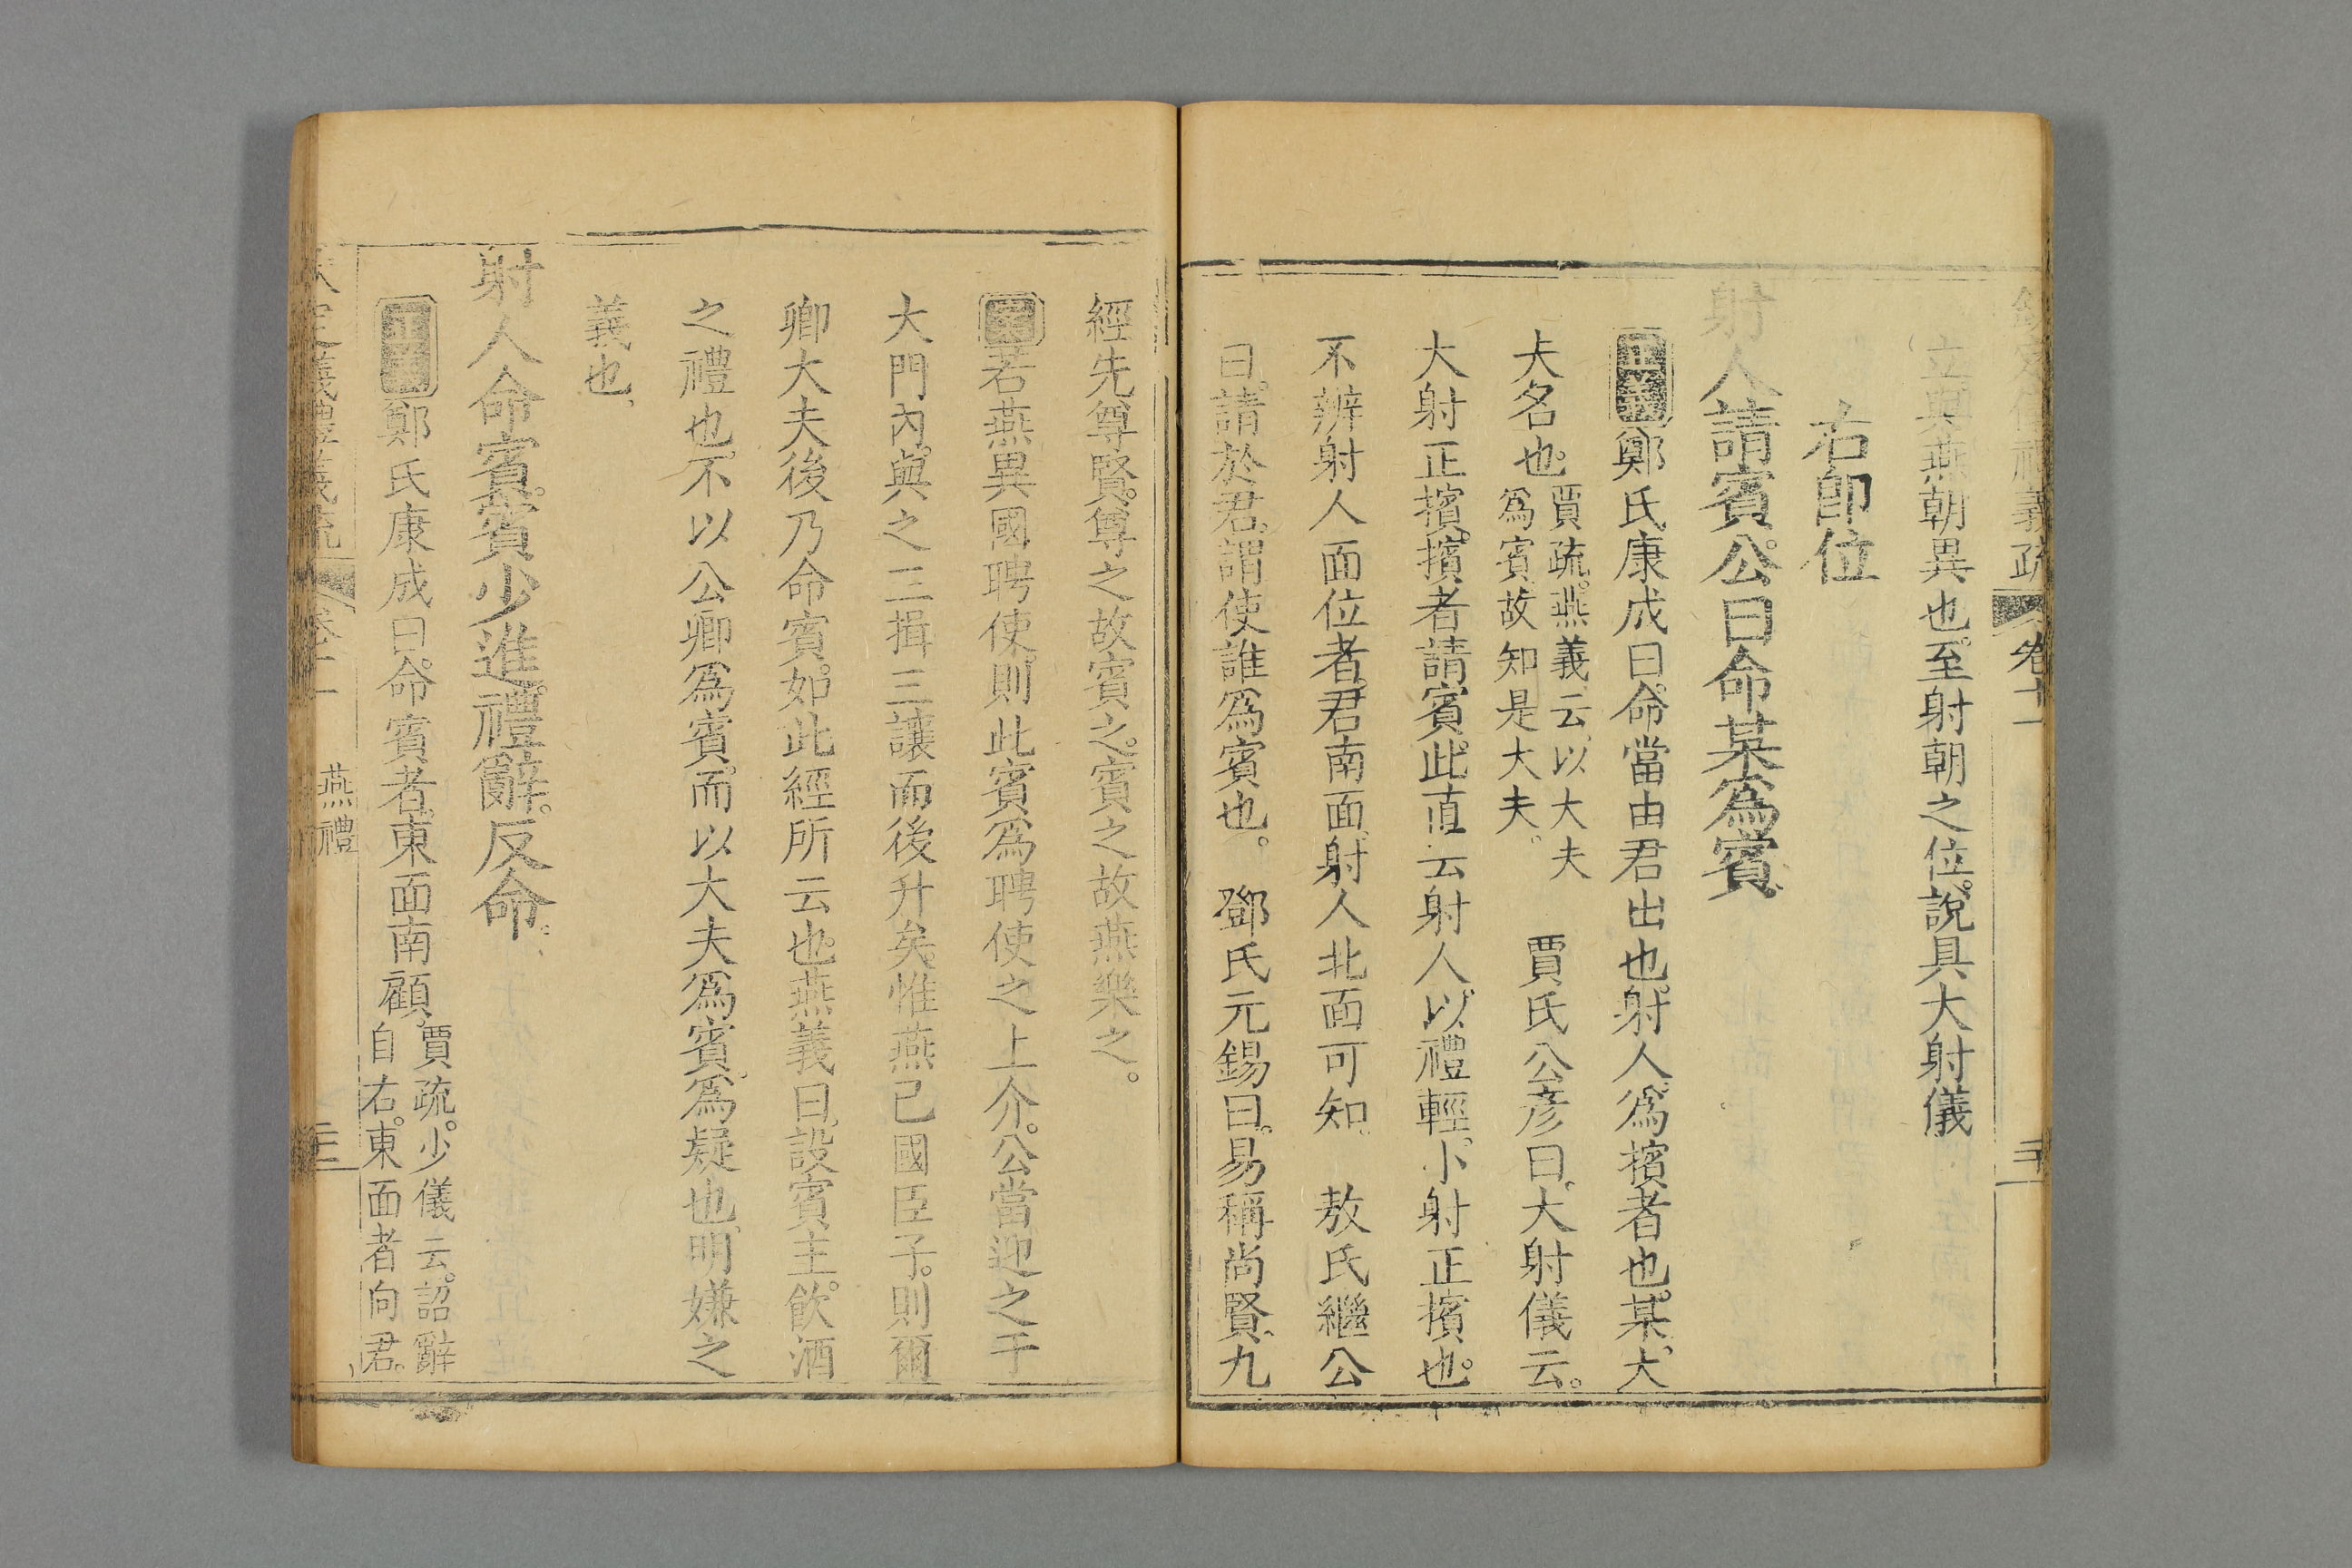 義疏 卷十一 三十
立與燕朝異也。至射朝之位。說具大射儀
右卽位
射人請賓。公曰。命某為賓。
正義 鄭氏康成曰。命當由君出也。射人為擯者也。某大
夫名也。賈疏。燕義云。以大夫
為賓。故知是大夫。 賈氏公彥曰。大射儀云。
大射正擯。擯者請賓。此直云射人。以禮輕。小射正擯也。
不辨射人面位者。君南面。射人北面可知。 敖氏繼公
曰。請於君。謂使誰為賓也。 鄧氏元錫曰。易稱尚賢。九
經先尊賢。尊之故賓之。賓之故燕樂之。
若燕異國聘使。則此賓為聘使之上介。公當迎之于
大門內。與之三揖三讓而後升矣。惟燕己國臣子。則爾
卿大夫後乃命賓。如此經所云也。燕義曰。設賓主。飲酒
之禮也。不以公卿為賓。而以大夫為賓。為疑也。明嫌之
義也。
射人命賓。賓少進。禮辭。反命。
正義 鄭氏康成曰。命賓者。東面南顧。賈疏。少儀云。詔辭
自右。東面者向君。
儀禮義疏 卷十一 燕禮